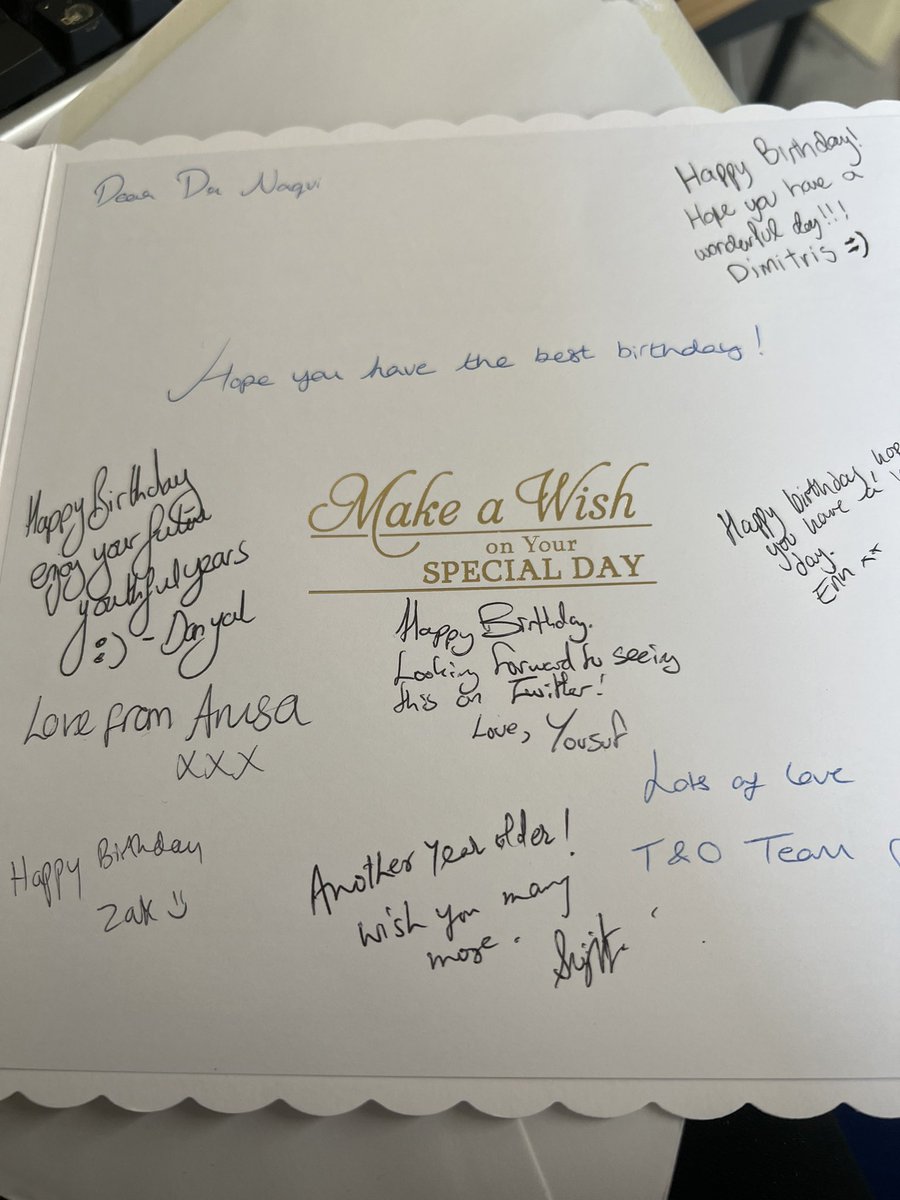 Dear Dr Naqvi
Happy Birthday!
Hope you have a
wonderful day!!!
Dimitris :)
Hope you have the best birthday!
Happy Birthday
enjoy your future
youthful years
:) - Danyal
Make a Wish
on Your
SPECIAL DAY
Happy birthday,
you have a
day.
Erin xx
Happy Birthday.
Looking forward to seeing
this on Twitter!
Love, Yousuf
Love from Anusa
xxx
Lots of love
T&O Team
Happy Birthday
Zak :)
Another year older!
wish you many
more.